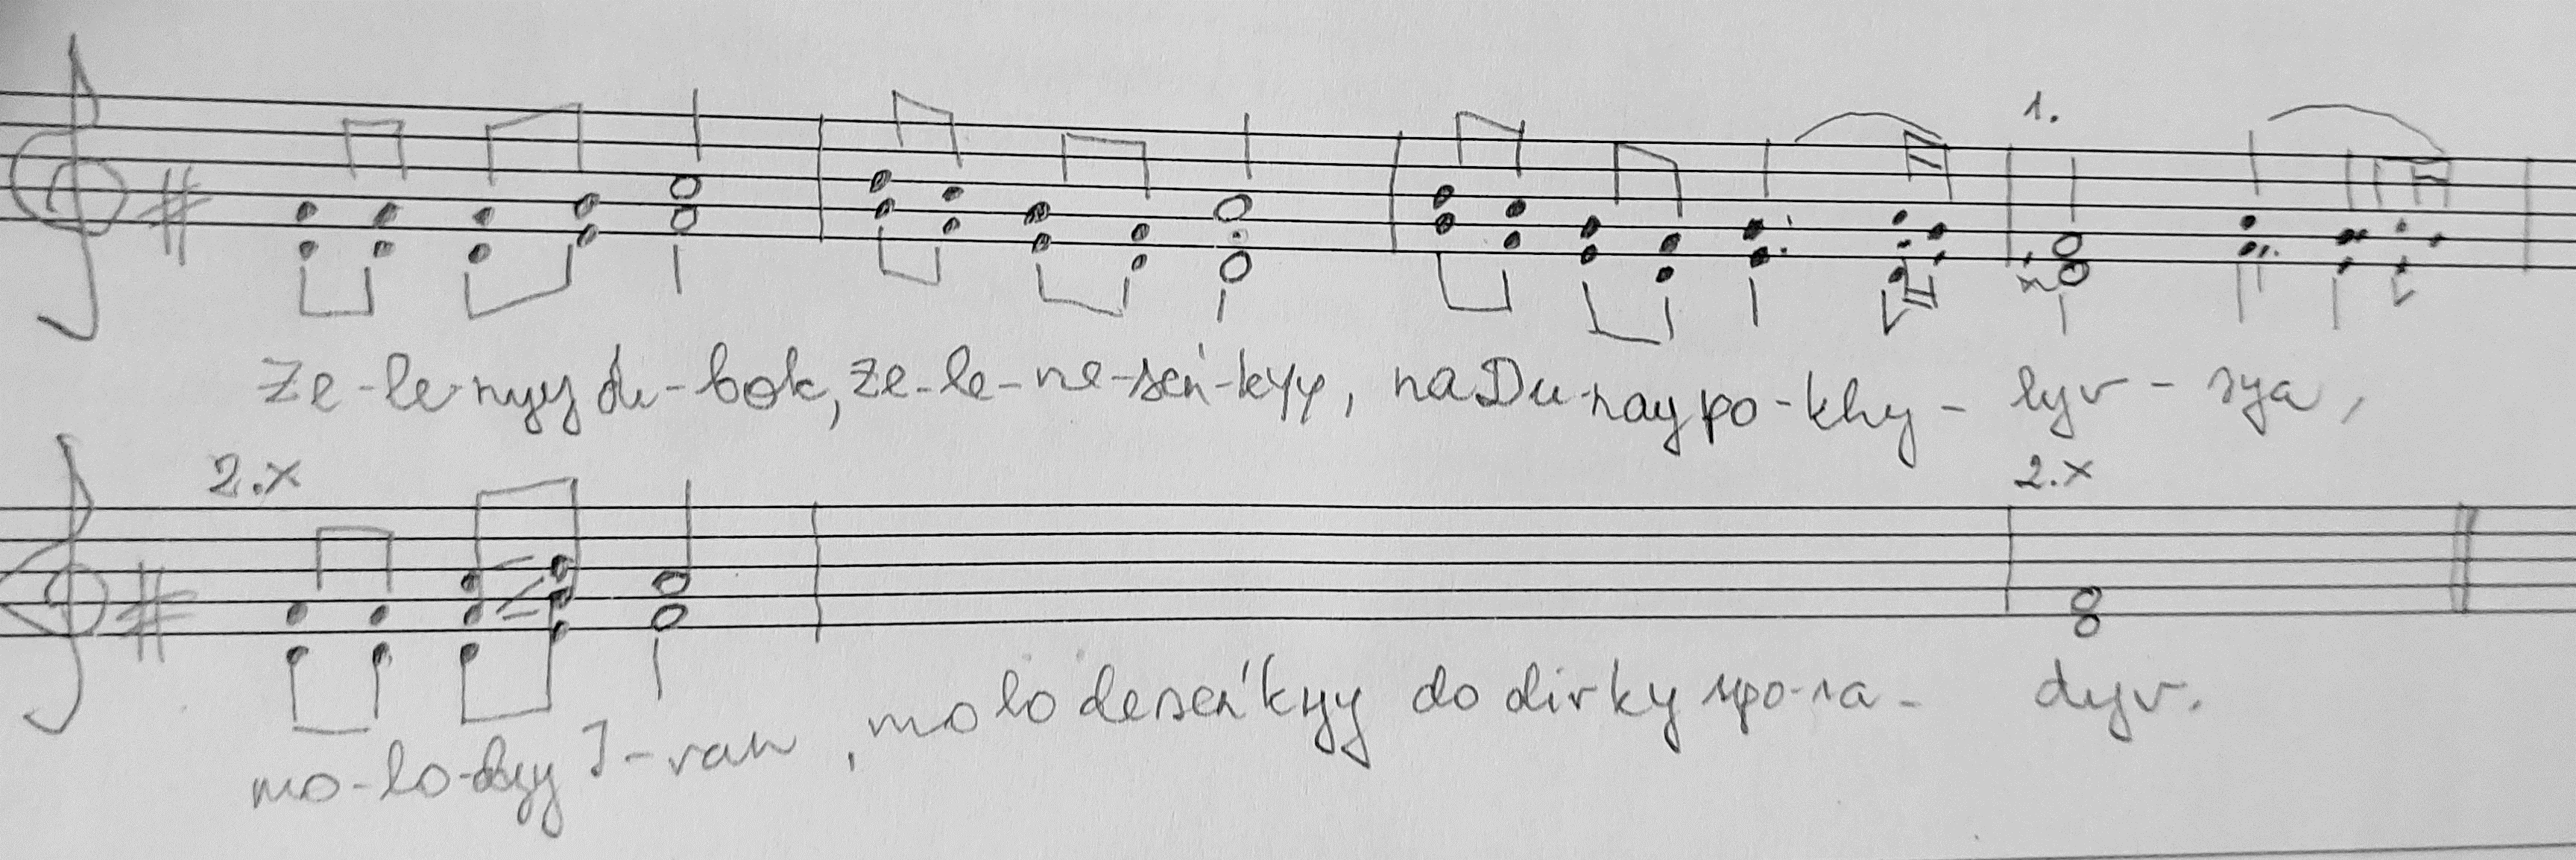 1.
Ze-le-nyy du-bok, ze-le-ne-seń-kyy, na Du-nay po-khy-lyv-sya,
2.x 2.x
mo-lo-dyy I-van, molodeseńkyy do dirky spo-ra-dyv.